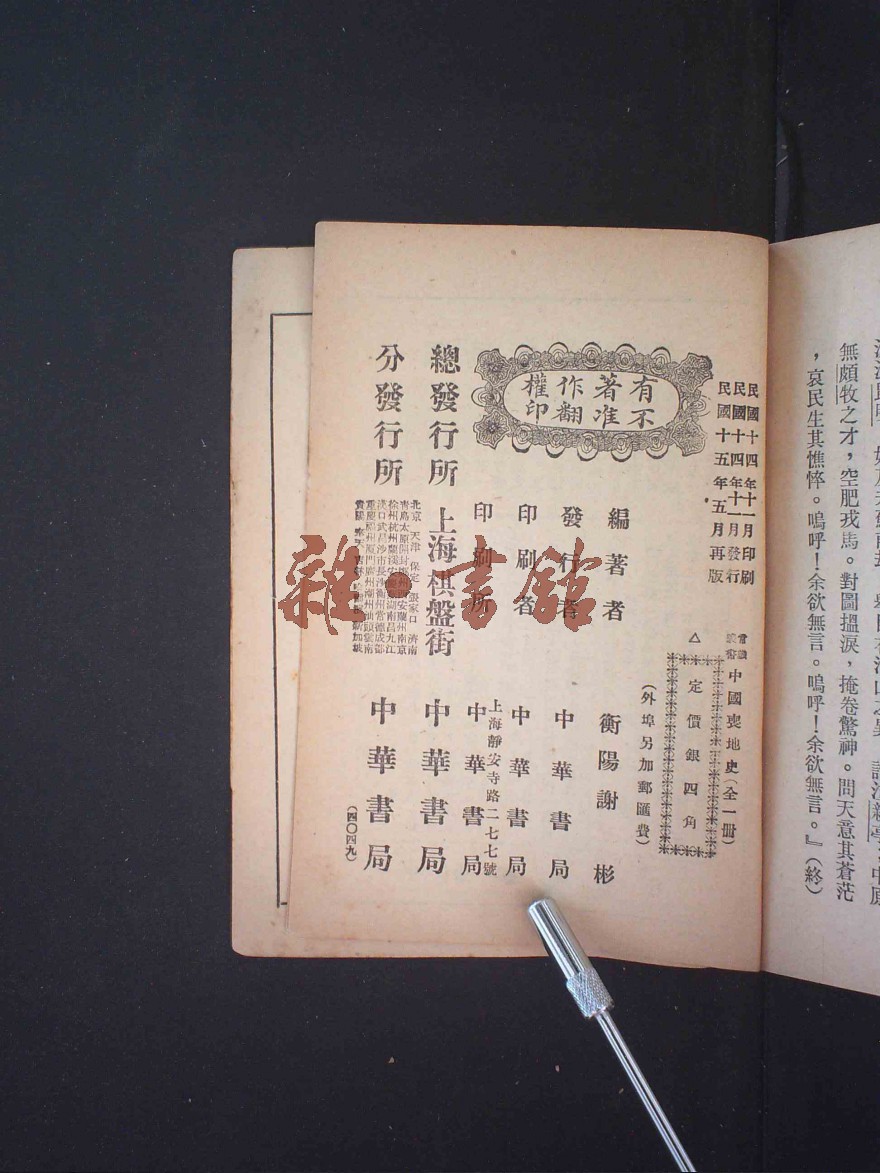 無頗牧之才，空肥戎馬。對圖搵淚，掩卷驚神。問天意其蒼茫
，哀民生其憔悴。嗚呼！余欲無言。嗚呼！余欲無言。』（終）
民國十四年十一月印刷
民國十四年十一月發行
民國十五年五月再版
有著作權
不准翻印
常識叢書
中國喪地史（全一冊）
△定價銀四角
（外埠另加郵匯費）
編著者 衡陽謝彬
發行者 中華書局
印刷者 中華書局
印刷所 上海靜安寺路二七七號 中華書局
總發行所 上海棋盤街 中華書局
分發行所 中華書局
北京 天津 保定 張家口 濟南
青島 太原 開封 西安 蘭州 南京
徐州 杭州 蘭溪 南昌 九江
漢口 武昌 沙市 長沙 衡州 常德 成都
重慶 福州 廈門 廣州 潮州 汕頭 雲南
（四〇四九）
雜·書館